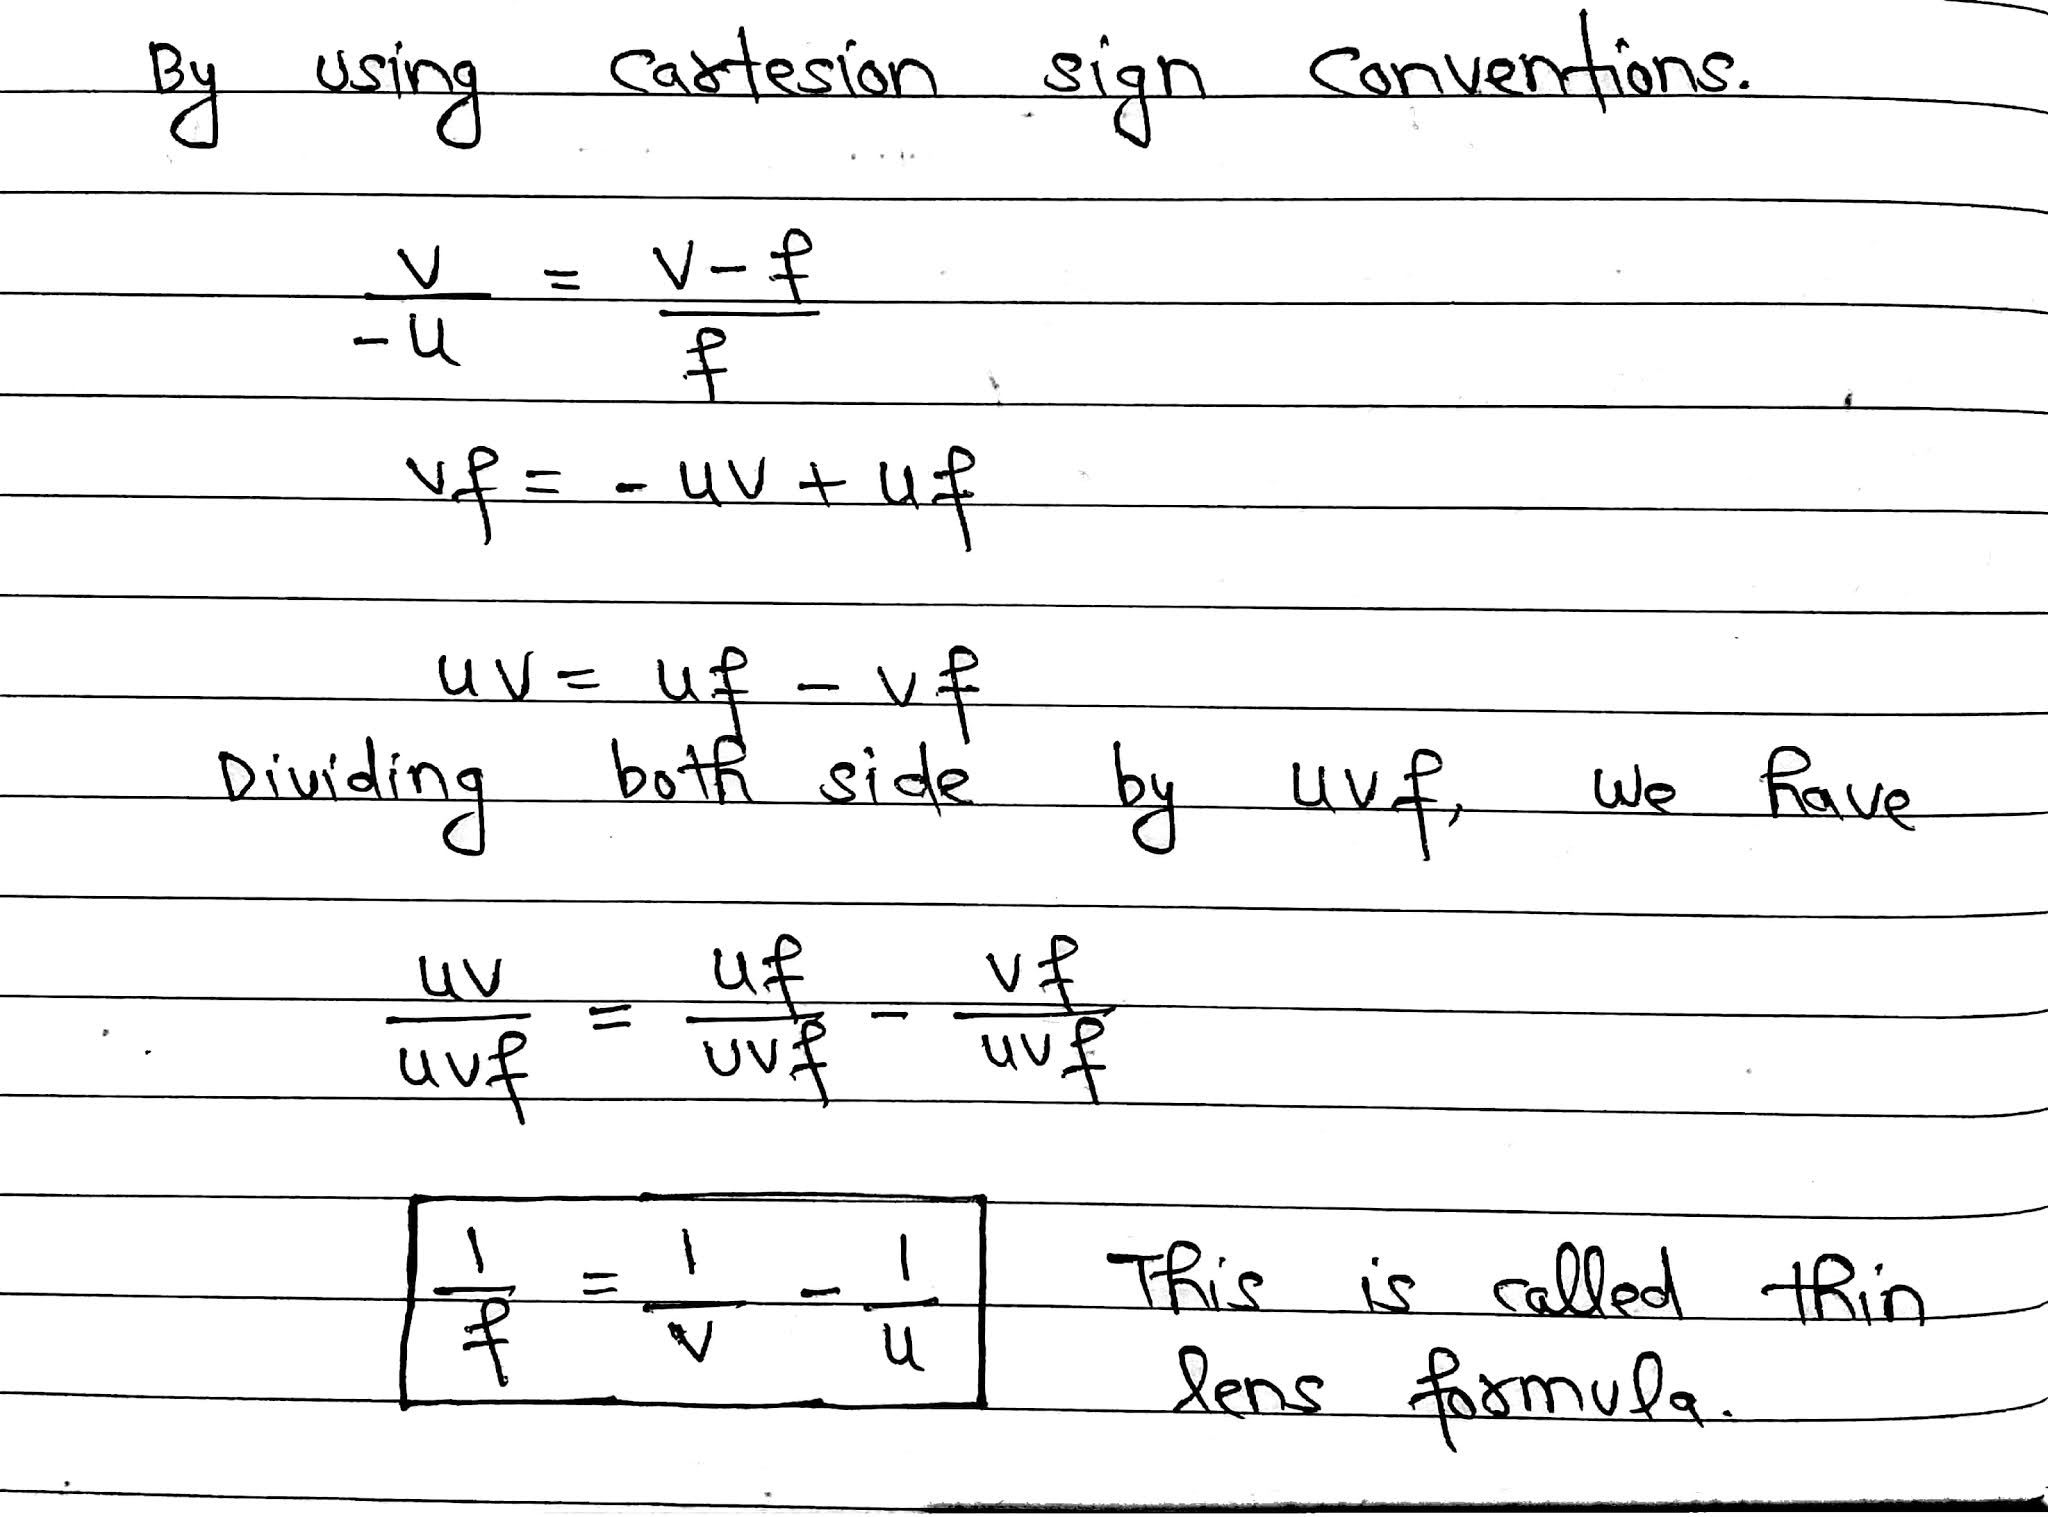 By using cartesion sign conventions.
v/-u = v-f/f
vf = - uv + uf
uv = uf - vf
Dividing both side by uvf, we have
uv/uvf = uf/uvf - vf/uvf
1/f = 1/v - 1/u This is called thin
lens formula.